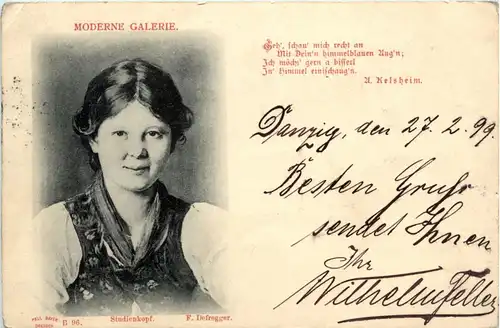 MODERNE GALERIE.
Geh', schau' mich recht an
Mit Dein'n himmelblauen Aug'n;
Ich möch' gern a bisserl
In' Himmel einischaug'n.
A. Kelsheim.
Danzig, den 27. 2. 99.
Besten Gruß
sendet Ihnen
Ihr
Wilhelm Feller
DRESDEN
B 96.
Studienkopf.
F. Defregger.